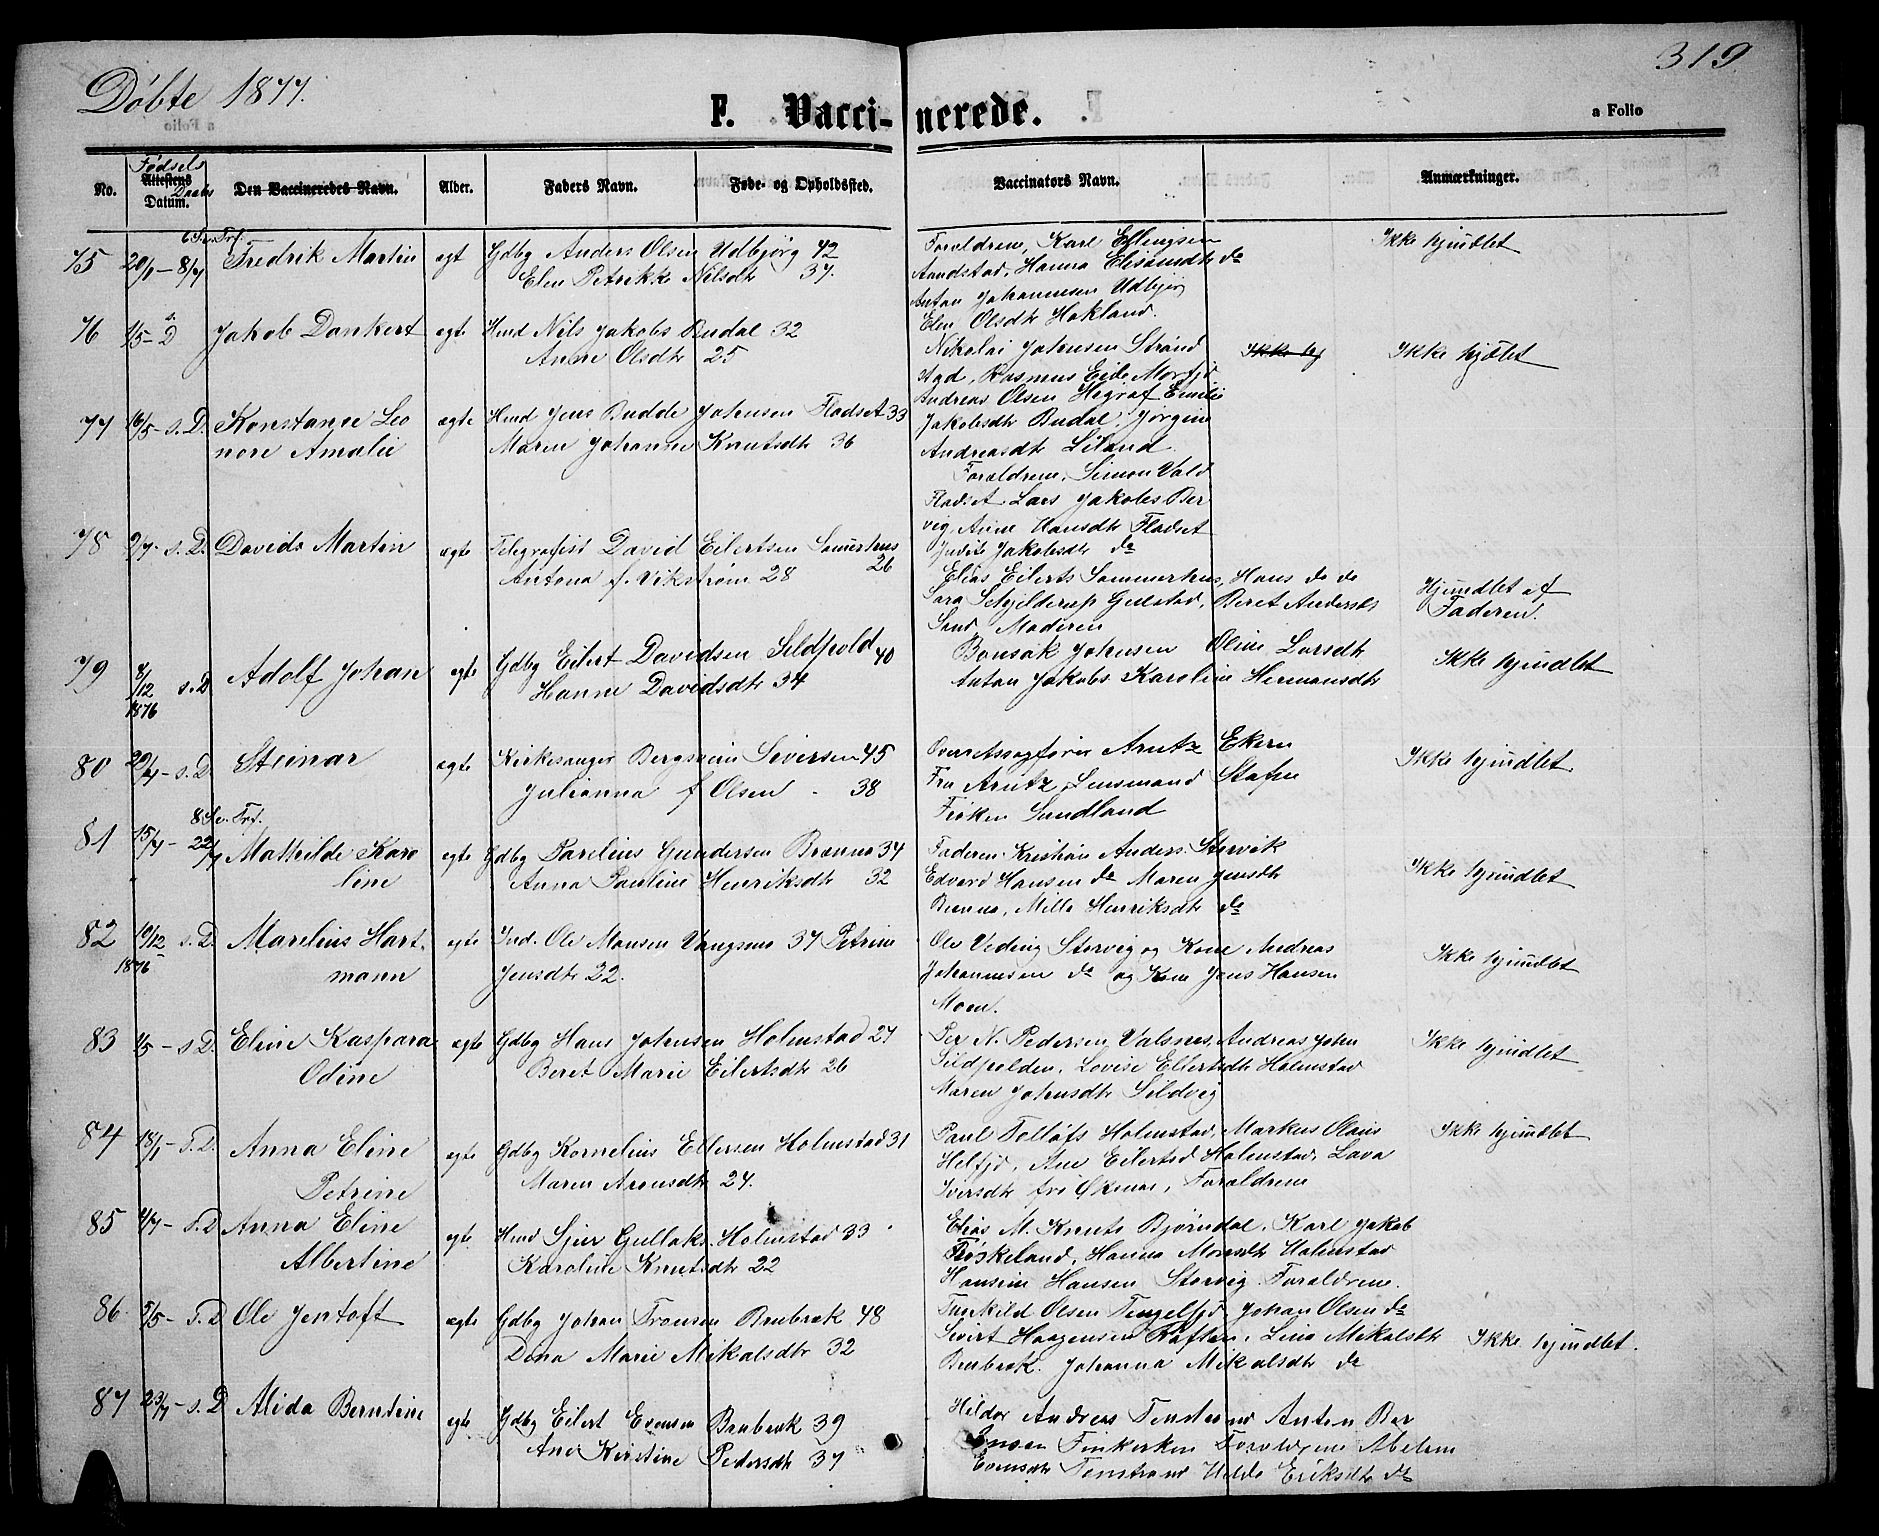 Døbte 1877.
319
F. Vaccinerede.
a Folio
No.
Fødsels
Attestens
Daabs
Datum.
Den Vaccineredes Navn.
Alder.
Faders Navn.
Føde- og Opholdssted.
Vaccinators Navn.
Anmærkninger.
75 20/1 - 8/7 Fredrik Martin egt Gdbg Anders Olsen Udbjørg 42
Elen Petrikke Nilsdtr 37.
Forældrene, Karl Ellingsen
Aandstad, Hanna da
Antan Johannesen Udbjørg
Elen Olsdtr Hokland.
Ikke hjemdøbt
76 1/5 - s. D Jakob Dankert egte Hmd Nils Jakobs Budal 32
Anne Olsdtr 25
Nikolai Johnsen Strand
Rasmus Eide
Andreas Olsen Emilie
Jakobsdtr Budal, Jørgine
Andreasdtr Liland
Ikke
Ikke hjdbt
77 16/5 - s. D. Konstanse Leo
nore Amalie
egte Hmd Jens Budde Johnsen Fladset 33
Maren Johanne Knutsdtr 36
Forældrene, Simon Vold
Fladset Lars Jakobs Ber
veg, Anne Hansdtr Fladset
Jakobsdtr da
78 9/7 - s. D. Davida Martin egte Telegrafist David Eilertsen Sommerhus
26
Antona f. Vikstrøm 28
Elias Eilerts Sommerhus, Hans do do
Sara Schjelderup Gulstad, Beret Anders
Sand Moderen
Hjemdbt af
Faderen.
79 8/12 1876 s. D Adolf Johan egte Gdbg Eilert Davidsen Sildpold 40
Hanne Davidsdtr 34
Bonsak Johnsen Oline Larsdtr
Antan Jakobs Karoline Hermansdtr
Ikke hjemdbt
80 29/4 - s. D. Steinar egte Kirkesanger Bergsvein Siversen 45
Julianna f Olsen - 38
Overretssagfører Arntz Ekern
Fru Arntz, Lensmand
Frøken Sundland
Ikke hjemdbt
81 15/4 - 22/7 Mathilde Karo
line
egte Gdbg Parelius Gundersen Brenna 34
Anna Pauline Henriksdtr 32
Faderen Kristian Anders. Storvik
Edvard Hansen da Maren Jensdtr
Brenna, Milla Henriksdtr da
Ikke hjemdbt
82 10/12 1876 s. D. Marelius Hart-
mann
egte Ind. Ole Monsen Vangsnes 37 Petrine
Jensdtr 22.
Ole Veding Storveg og Kone Andreas
Johannesen da og Kone Jens Hansen
Moen.
Ikke hjemdbt
83 1/5 - s D. Eline Kaspara
Odine
egte Gdbg Hans Johnsen Holmstad 27
Beret Marie Eilertsdtr 26
Per N. Pedersen Valsnes, Andreas John
Sildpolden, Lovise Ellertsdtr Holmstad
Maren Johnsdtr Sildveg
Ikke hjemdbt
84 18/1 - s. D. Anna Eline
Petrine
egte Gdbg Kornelius Ellersen Holmstad 31
Maren Aronsdtr 24.
Paul Tollefs Holmstad, Markus Olaus
Helfjd, Ane Eilertsd Holmstad, Lava
Iversdtr fra Øksnes, Forældrene
Ikke hjemdbt
85 4/7 - s. D Anna Eline
Albertine
egte Hmd Sjur Gullaks. Holmstad 33
Karoline Knutsdtr 22
Elias M. Knuts Bjørndal, Karl Jakob
Frøskeland, Hanna Monsdtr Holmstad
Hansine Hansen Storveg. Forældrene.
86 5/5 - s. D Ole Jentoft egte Gdbg Johan Tronsen Brubræk 48
Dina Marie Mikalsdtr 32
Olsen Tengelfjd, Johan Olsen da
Sivert Haagensen Raften, Lina Mikalsdtr
Brubræk. Johanna Mikalsdtr da
Ikke hjemdbt.
87 23/7 - s. D Alida Berntine egte Gdbg Eilert Evensen Brubræk 39
Ane Kirstine Pedersdtr 37
Hildor Andreas Anton Ber
Finkerken Forældrene Abelone
Evensdtr Hilda Eriksdtr da